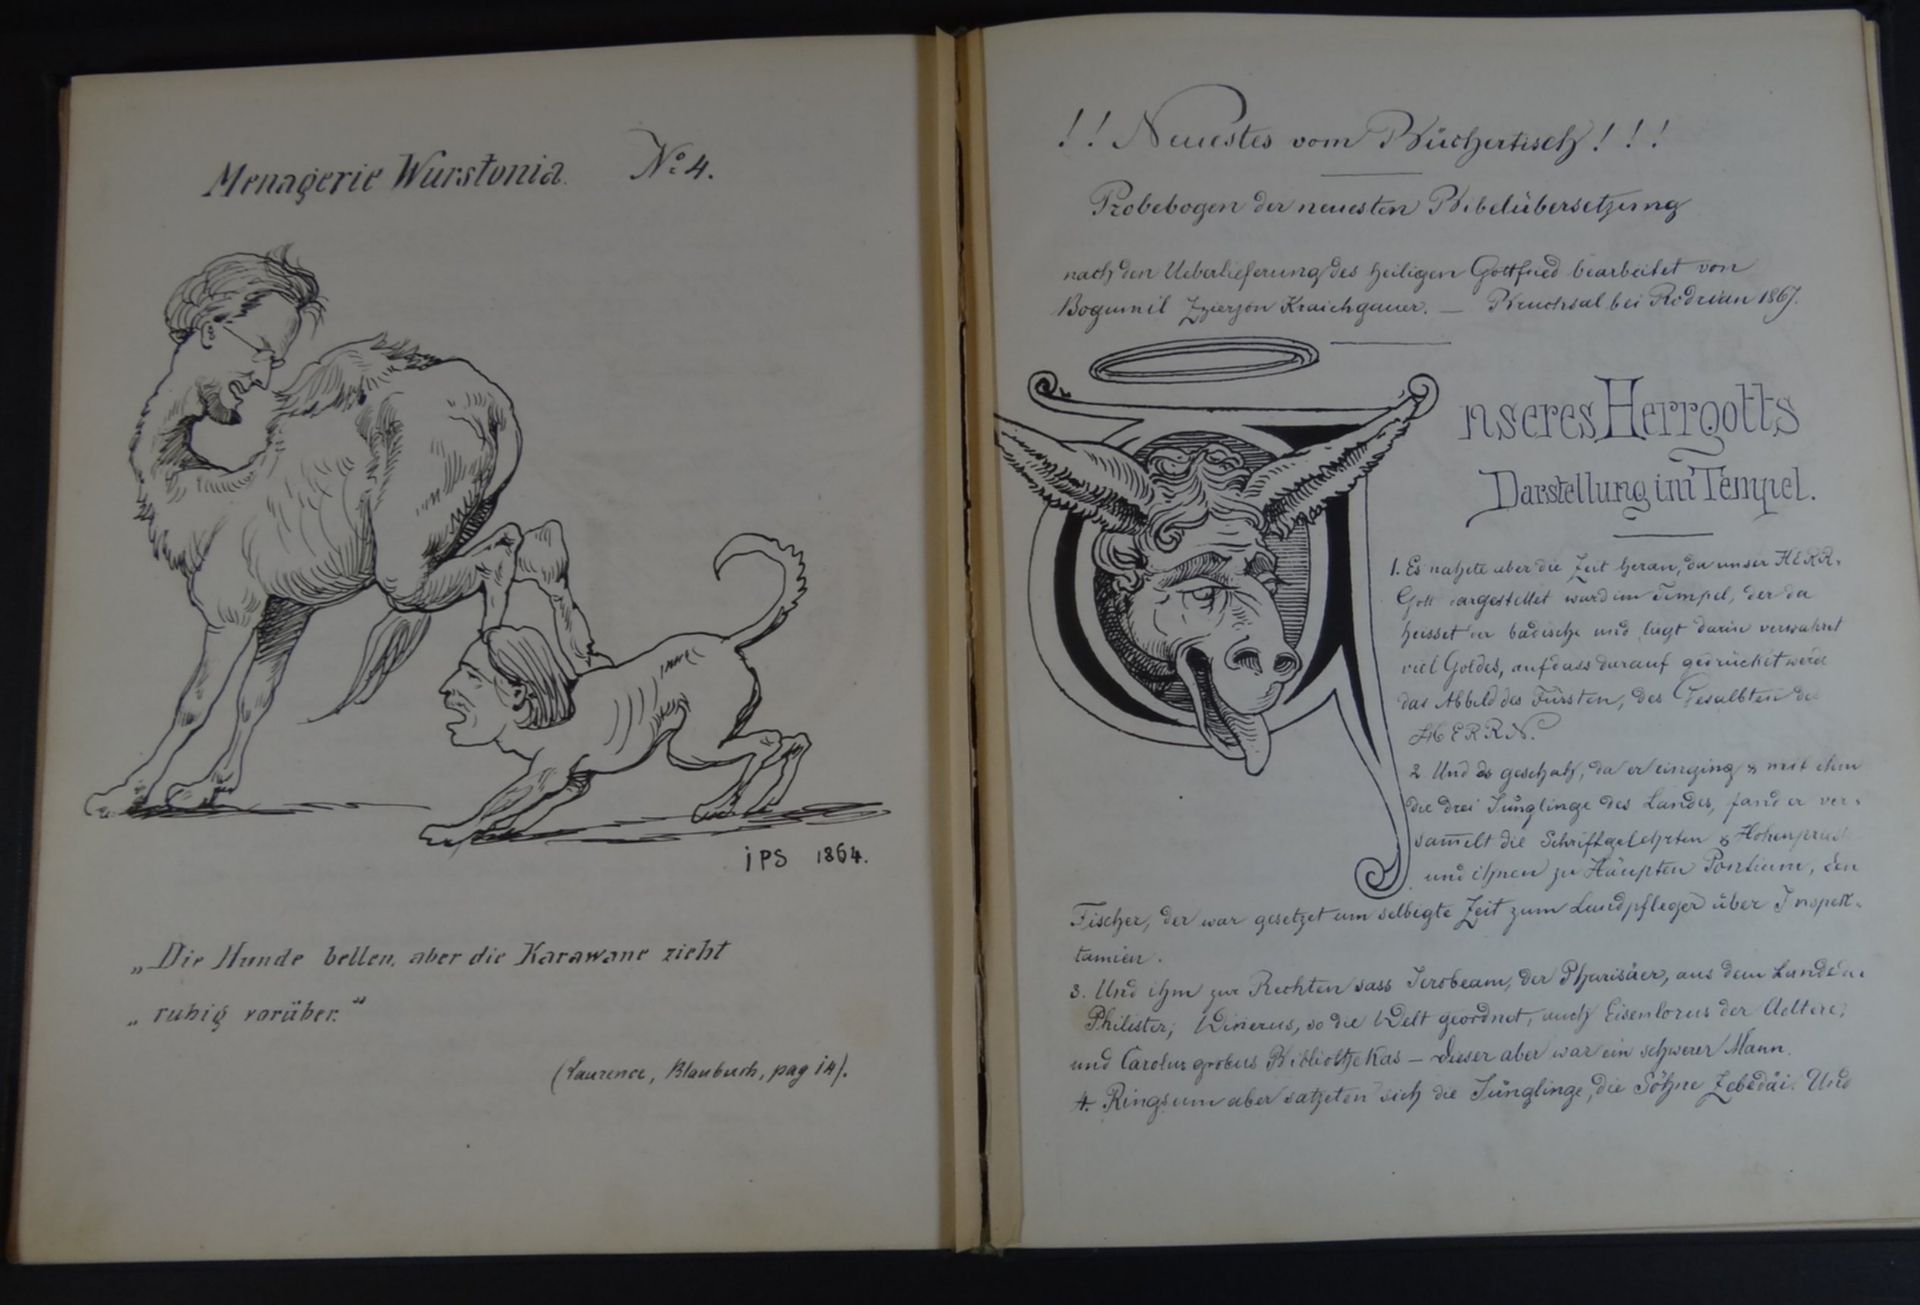 Menagerie Wurstonia. No. 4.
iPS 1864.
„Die Hunde bellen, aber die Karawane zieht
„ ruhig vorüber.“
(Laurence, Blaubuch, pag 14).
!! Neuestes vom Büchertisch!!!
Probebogen der neuesten Bibelübersetzung
nach den Ueberlieferung des heiligen Gottfried bearbeitet von
Bogumil Kraichgauer. — Bruchsal bei Rodrian 1867.
Unseres Herrgotts
Darstellung im Tempel.
1. Es nahete aber die Zeit heran, da unser HERR-
Gott dargestellet ward im Tempel, der da
heisset der badische und liegt darin verwahret
viel Goldes, auf dass darauf gedrücket werde
das Abbild des Fürsten, des Gesalbten des
HERRN.
2. Und es geschah, da er einging & mit ihm
die drei Jünglinge des Landes, fand er ver-
sam̅elt die Schriftgelehrten & Hohenpriest
und ihnen zu Häupten Pontium, den
Fischer, der war gesetzet um selbigte Zeit zum Landpfleger über Inspek-
tamien.
3. Und ihm zur Rechten sass Jerobeam, der Pharisäer, aus dem Lande der
Philister; Winerus, so die Welt geordnet, auch Eisenlorus der Aeltere,
und Carolus grobus Bibliothekas — dieser aber war ein schwerer Mann.
4. Ringsum aber satzeten sich die Jünglinge, die Söhne Zebedäi. Und